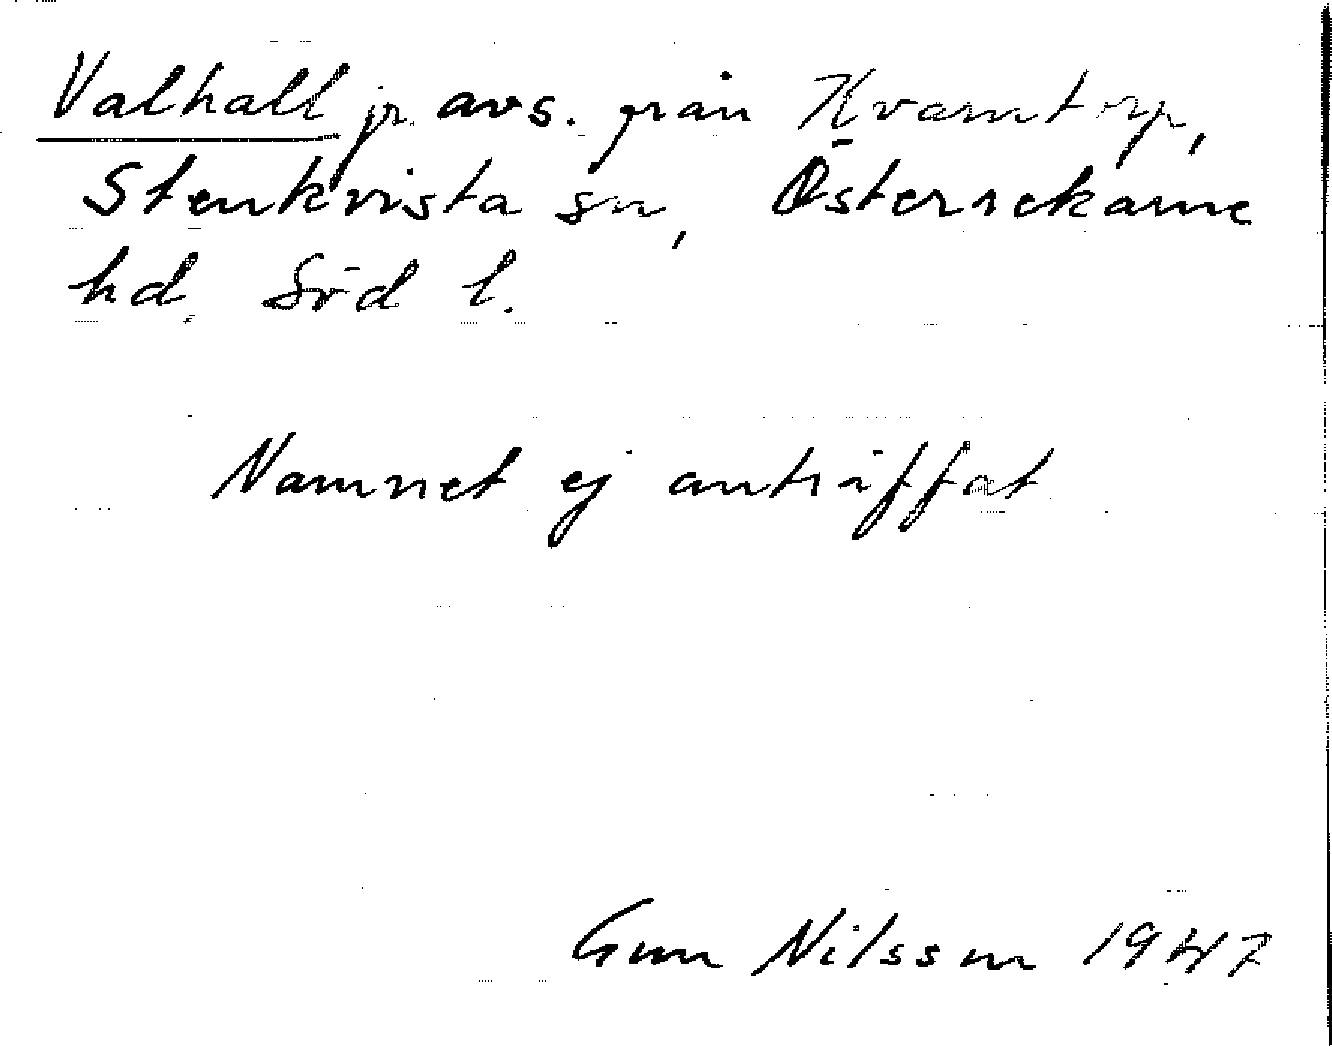 Valhall jr. avs. från Kvarntorp,
Stenkvista sn, Österrekarne
hd. Söd l.
Namnet ej anträffat
Gun Nilsson 1947